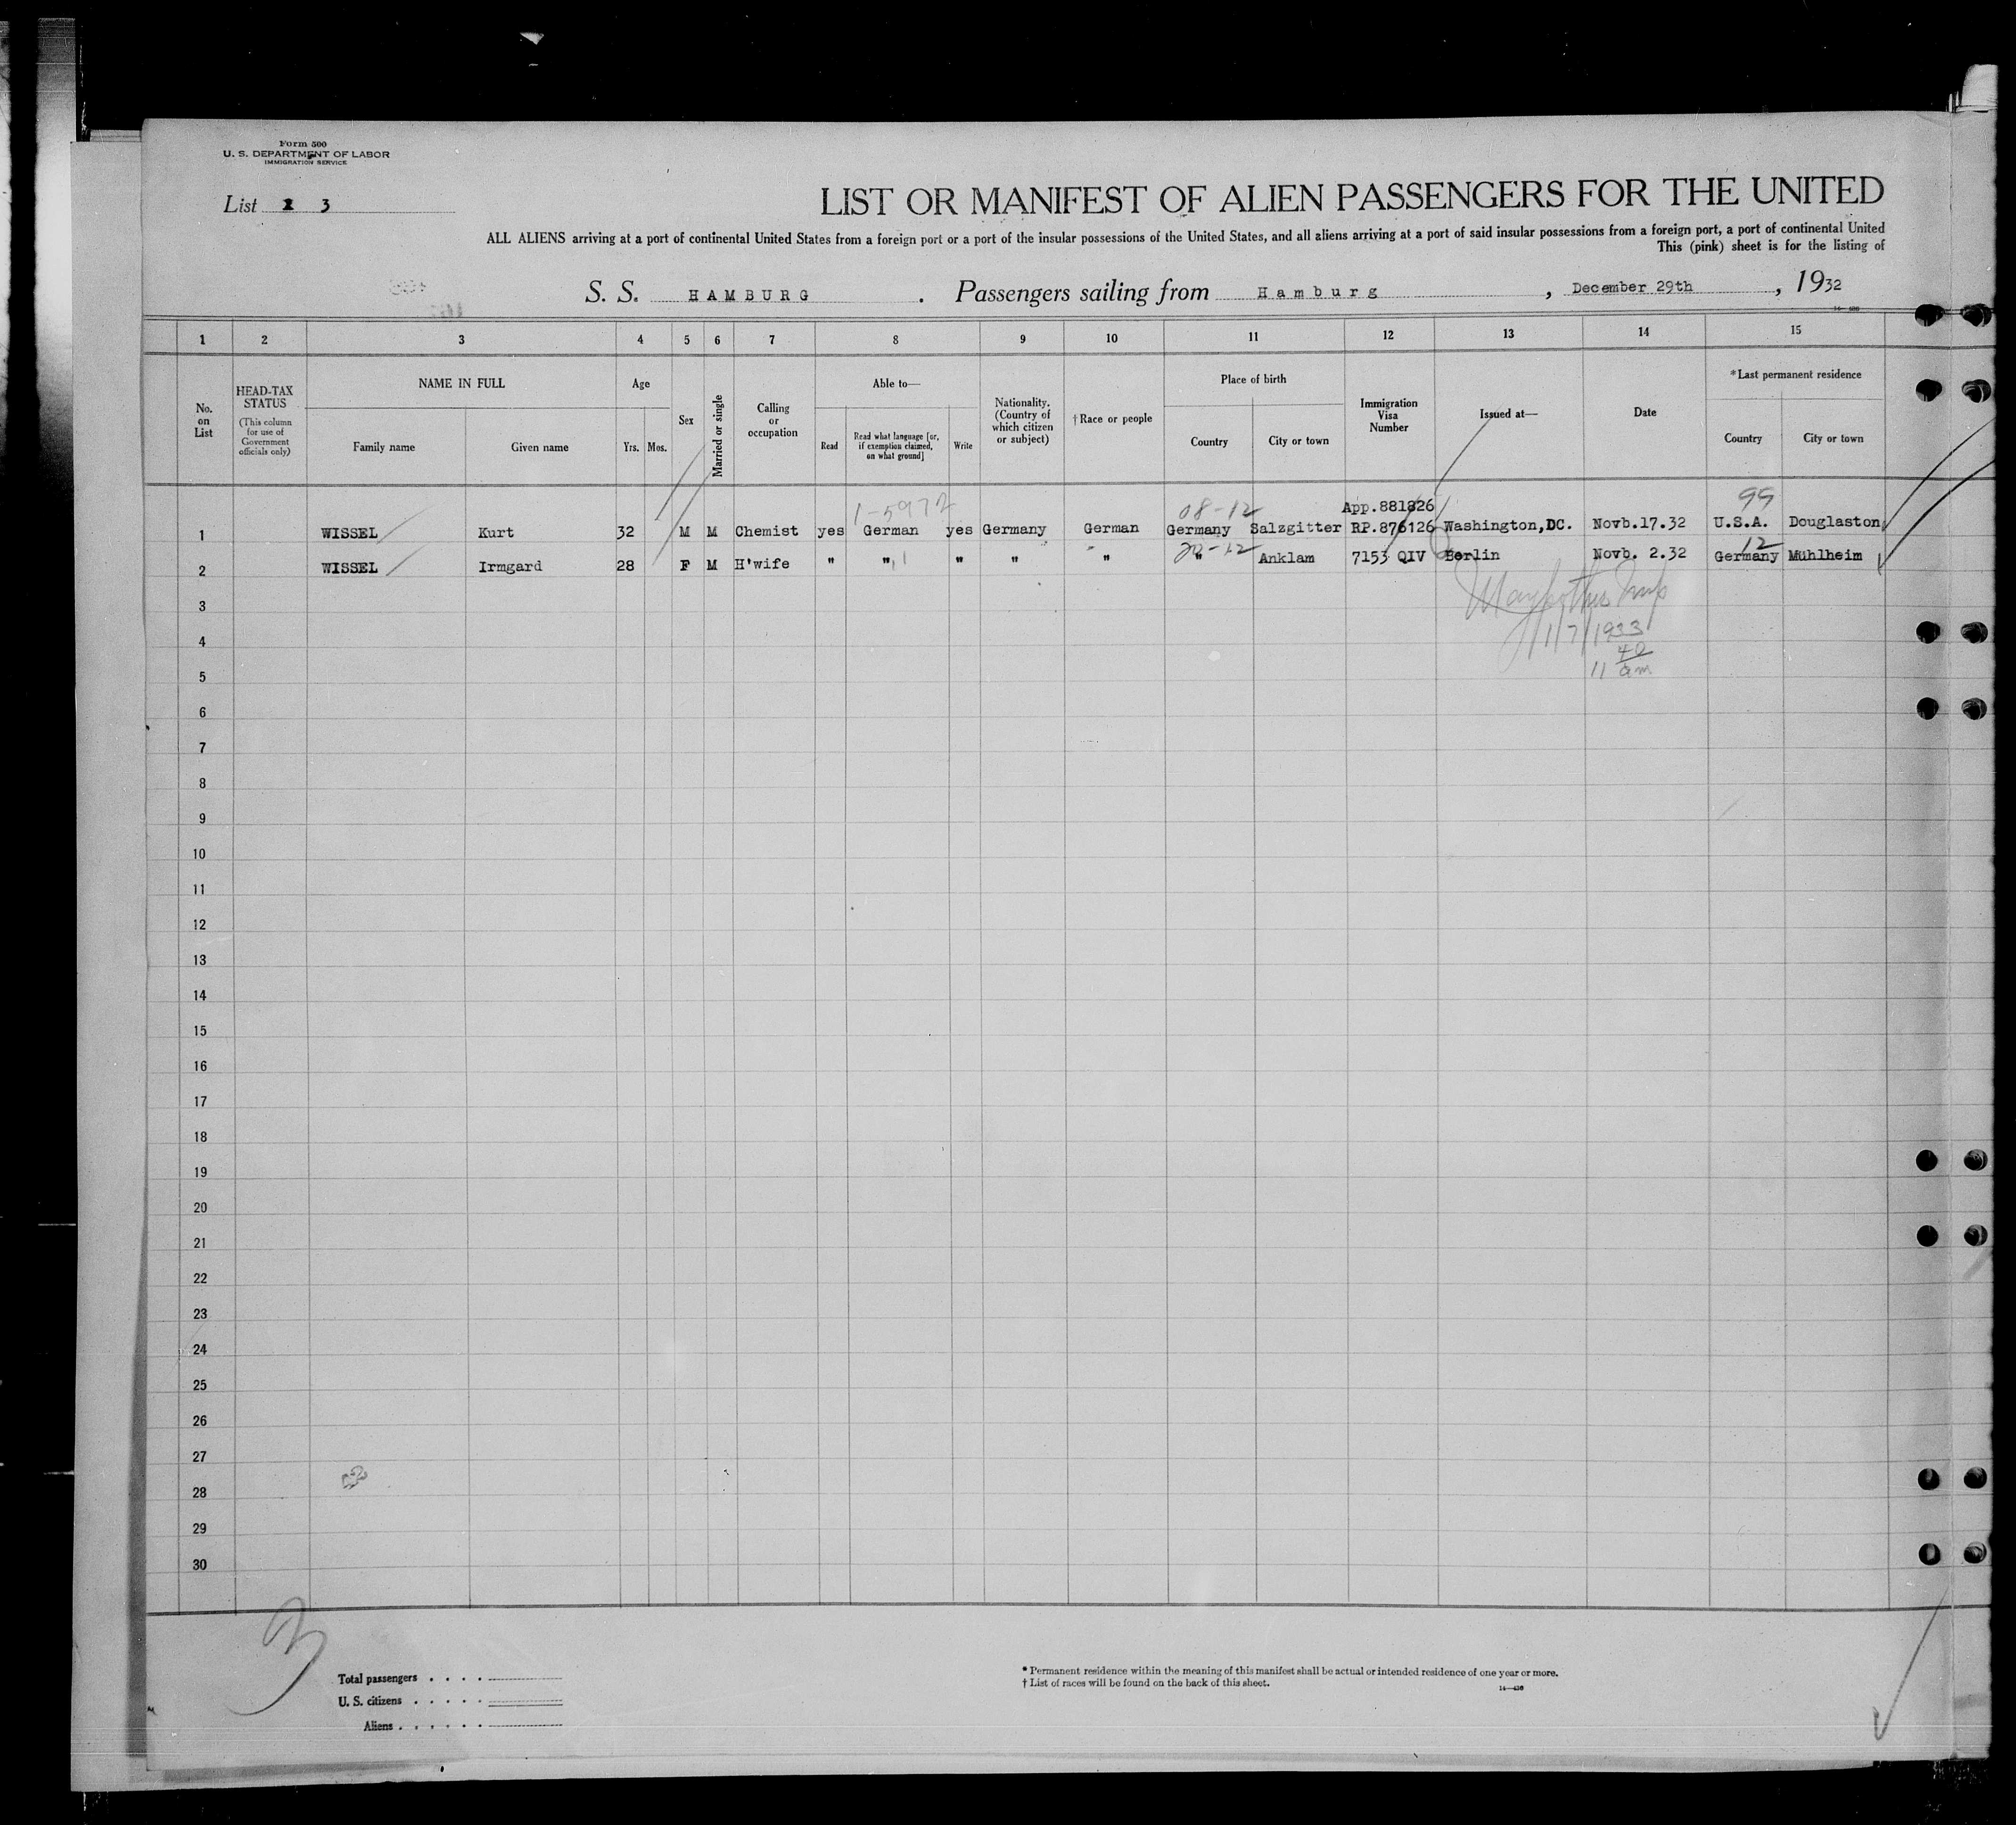 Form 500
U. S. DEPARTMENT OF LABOR
IMMIGRATION SERVICE
List 3
LIST OR MANIFEST OF ALIEN PASSENGERS FOR THE UNITED
ALL ALIENS arriving at a port of continental United States from a foreign port or a port of the insular possessions of the United States, and all aliens arriving at a port of said insular possessions from a foreign port, a port of continental United
This (pink) sheet is for the listing of
S. S. HAMBURG . Passengers sailing from Hamburg , December 29th , 1932
1 2 3 4 5 6 7 8 9 10 11 12 13 14 15
No. on List
HEAD-TAX STATUS
(This column for use of Government officials only)
NAME IN FULL
Family name
Given name
Age
Yrs. Mos.
Sex
Married or single
Calling or occupation
Able to—
Read
Read what language [or, if exemption claimed, on what ground]
Write
Nationality. (Country of which citizen or subject)
†Race or people
Place of birth
Country
City or town
Immigration Visa Number
Issued at—
Date
*Last permanent residence
Country
City or town
1-5972 08-12 App.881826 99
1 WISSEL Kurt 32 M M Chemist yes German yes Germany German Germany Salzgitter RP.876126 Washington,DC. Novb.17.32 U.S.A. Douglaston
12
2 WISSEL Irmgard 28 F M H'wife " " " " " " Anklam 7153 QIV Berlin Novb. 2.32 Germany Mühlheim
3
1/7/1933
4
11 40 am
5
6
7
8
9
10
11
12
13
14
15
16
17
18
19
20
21
22
23
24
25
26
27
28
29
30
3
Total passengers . . . .
U. S. citizens . . . . .
Aliens . . . . . .
* Permanent residence within the meaning of this manifest shall be actual or intended residence of one year or more.
† List of races will be found on the back of this sheet.